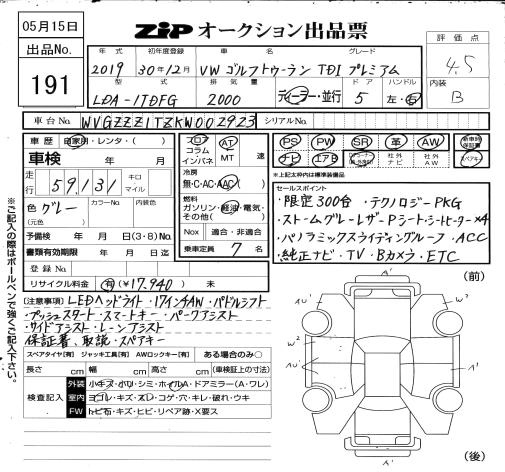 05月15日
出品No.
191
ZiP オークション出品票
評価点
4.5
内装
B
年式 初年度登録 車名 グレード
2019 30年12月 VW ゴルフトゥーラン TDI プレミアム
型式 排気量 ドア ハンドル
LDA-1TDFG 2000 ディーラー・並行 5 左・右
車台No. WVGZZZ1TZKW002923 シリアルNo.
車歴 自家用・レンタ・( )
車検 年 月
走行 59,131 キロ マイル
色 グレー カラーNo. 内装色
(元色)
予備検 年 月 日(3・8)No.
書類有効期限 年 月 日迄
登録No.
リサイクル料金 有(¥17,940) 未
フロア コラム インパネ AT MT 速
冷房
無・C・AC・AAC( )
燃料
ガソリン・軽油・電気・
その他( )
Nox 適合・非適合
乗車定員 7 名
PS PW SR 革 AW 新車時保証書
ナビ エアB 社外ナビ 社外AW スペアキー
※上記太わ枠は標準装備品
セールスポイント
・限定300台 ・テクノロジーPKG
・ストームグレーレザーPシート・シートヒーター×4
・パノラミックスライディングルーフ・ACC
・純正ナビ・TV・Bカメラ・ETC
[注意事項] LEDヘッドライト・17インチAW・パドルシフト
・プッシュスタート・スマートキー・パークアシスト
・サイドアシスト・レーンアシスト
保証書、取説・スペアキー
スペアタイヤ[有] ジャッキ工具[有] AWロックキー[有] ある場合のみ○
長さ cm 幅 cm 高さ cm (車検証上の寸法)
検査記入
外装 小キズ・小ハリ・シミ・ホイルA・ドアミラー(A・ワレ)
室内 ヨゴレ・キズ・スレ・コゲ・穴・キレ・破れ・ウキ
FW トビ石・キズ・ヒビ・リペア跡・X要ス
※ご記入の際はボールペンで強くご記入下さい。
(前)
A'
W²
W²
A'
A'
(後)